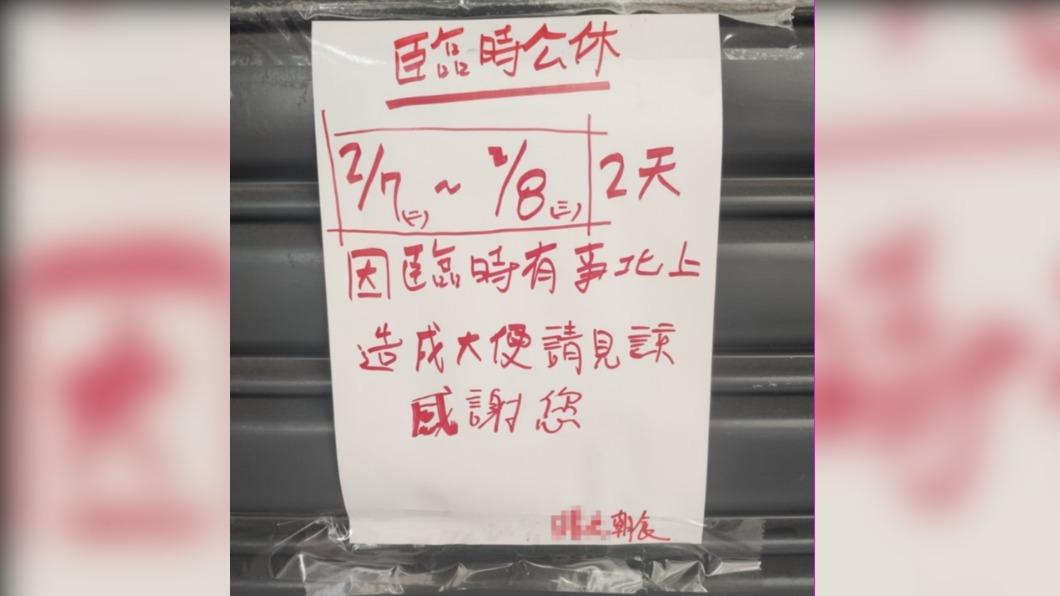 臨時公休
2/7(二) ~ 2/8(三) 2天
因臨時有事北上
造成大便請見諒
感謝您
朝食